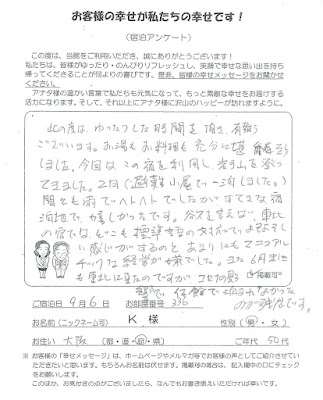 お客様の幸せが私たちの幸せです！
（宿泊アンケート）
この度は、当館をご利用いただき、誠にありがとうございます！
私たちは、皆様がゆったり・のんびりリフレッシュし、笑顔で幸せな思い出を持ち
帰ってくださることが何よりの喜びです。是非、皆様の幸せメッセージをお聞かせ
ください。
アナタ様の温かい言葉で私たちも元気になって、もっと素敵な幸せをお届けする
活力になります。そして、それ以上にアナタ様に沢山のハッピーが訪れますように。
此の度は、ゆったりした時間を頂き、有難う
ございます。お湯もお料理も充分に堪能
しました。今回はこの宿を利用し、岩手山を登っ
てきました。2日（避難小屋で一泊しました。）
間とも雨でヘトヘトでしたがすてきな宿
泊地で、嬉しかったです。
の宿では、どこも標準
感じがするのと、あまりにもマニュアル
チックな経営が嫌でした。また6月末に
も東北に来たのですが
掲載可
のが残念です。
ご宿泊日 9月6日 お部屋番号 336
お名前（ニックネーム可） K 様 性別（男・女）
お住い 大阪（都・道・府・県） ご年代 50代
※ お客様の「幸せメッセージ」は、ホームページやメルマガ等でお客様の声としてご紹介させて
いただきたいと思います。もちろんお名前は伏せます。掲載可の場合は、記入欄中の口にチェック
をお願いいたします。
このほか、お気付きの点がございましたら、なんでもお書き添えいただければ幸いです。